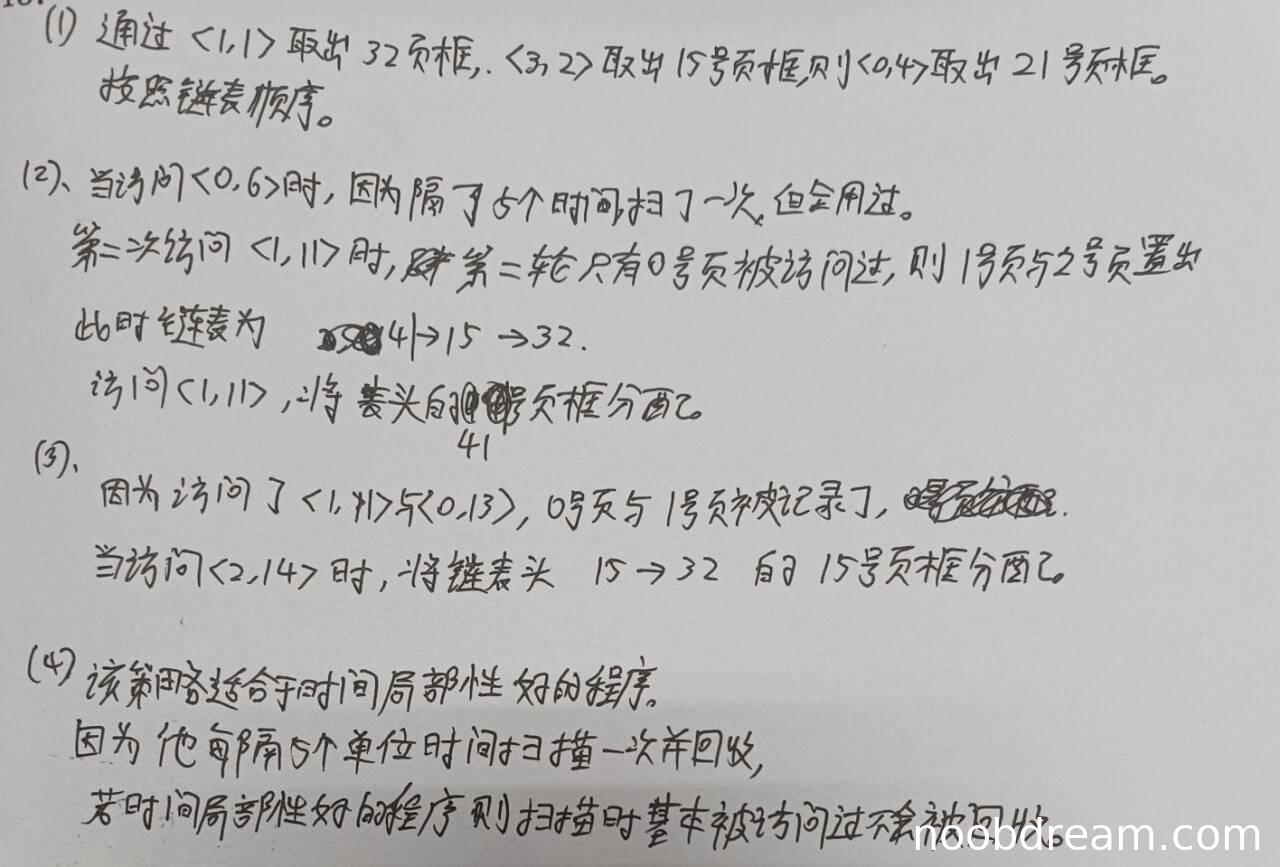 (1) 通过<1,1>取出32页框,.<3,2>取出15号页框,则<0,4>取出21号页框。
按照链表顺序。
(2)、当访问<0,6>时,因为隔了5个时间,扫了一次,但全用过。
第二次访问<1,11>时,第二轮只有0号页被访问过,则1号页与2号页置出
此时链表为 41→15→32.
访问<1,11>,将表头的41号页框分配。
(3)、
因为访问了<1,11>与<0,13>,0号页与1号页被记录了,
当访问<2,14>时,将链表头 15→32 的15号页框分配。
(4) 该策略适合于时间局部性好的程序。
因为他每隔5个单位时间扫描一次并回收,
若时间局部性好的程序则扫描时基本被访问过不会被回收。
noobdream.com